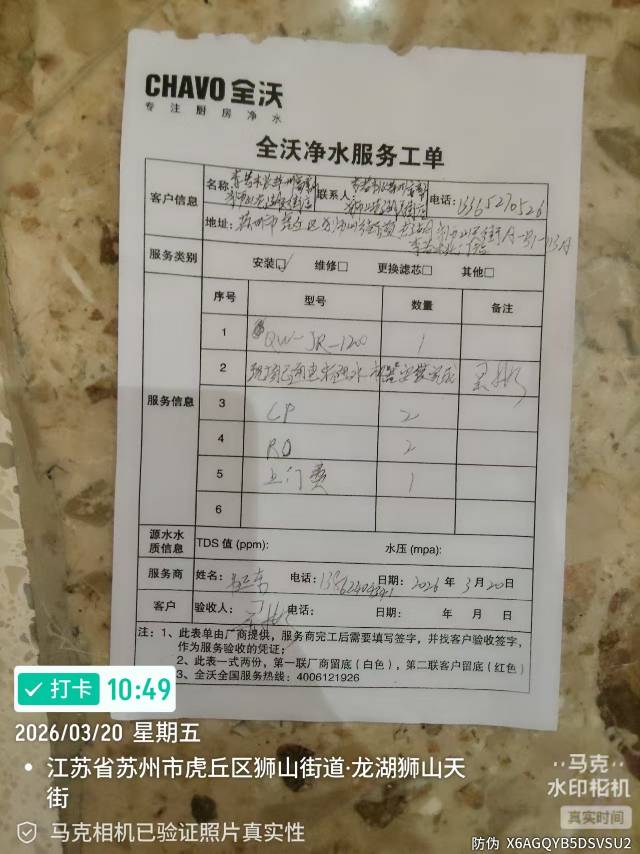 CHAVO 全沃
专 注 厨 房 净 水
全沃净水服务工单
客户信息
名称:
联系人:
电话: 13365270526
地址: 苏州市虎丘区
服务类别
安装☑ 维修□ 更换滤芯□ 其他□
服务信息
序号 型号 数量 备注
1 QW-JR-1200 1
2
3 CP 2
4 RO 2
5 上门费 1
6
源水水质信息
TDS 值 (ppm): 水压 (mpa):
服务商 姓名: 电话: 日期: 2026 年 3 月 20 日
客户 验收人: 电话: 日期: 年 月 日
注: 1、此表单由厂商提供，服务商完工后需要填写签字，并找客户验收签字，
作为服务验收的凭证；
2、此表一式两份，第一联厂商留底（白色），第二联客户留底（红色）
3、全沃全国服务热线: 4006121926
打卡 10:49
2026/03/20 星期五
江苏省苏州市虎丘区狮山街道·龙湖狮山天
街
马克相机已验证照片真实性
马克
水印相机
真实时间
防伪 X6AGQYB5DSVSU2